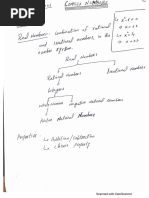 Complex Numbers
Real Numbers: Combination of rational
and irrational numbers, in the
number system.
Real Numbers
Rational Numbers
Irrational Numbers
Integers
negative natural Numbers
Natural Numbers
Properties:
Addition/Subtraction
Closure Property
Scanned with CamScanner